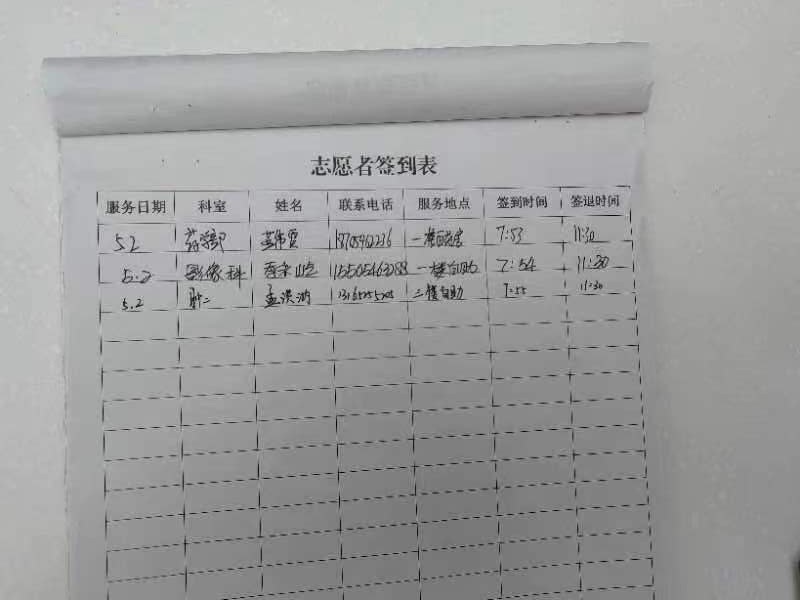 志愿者签到表
服务日期 科室 姓名 联系电话 服务地点 签到时间 签退时间
5.2 药学部 7:53 11:30
5.2 影像科 一楼自助 7:54 11:30
5.2 肿二 孟洪湖 二楼自助 7:55 11:30